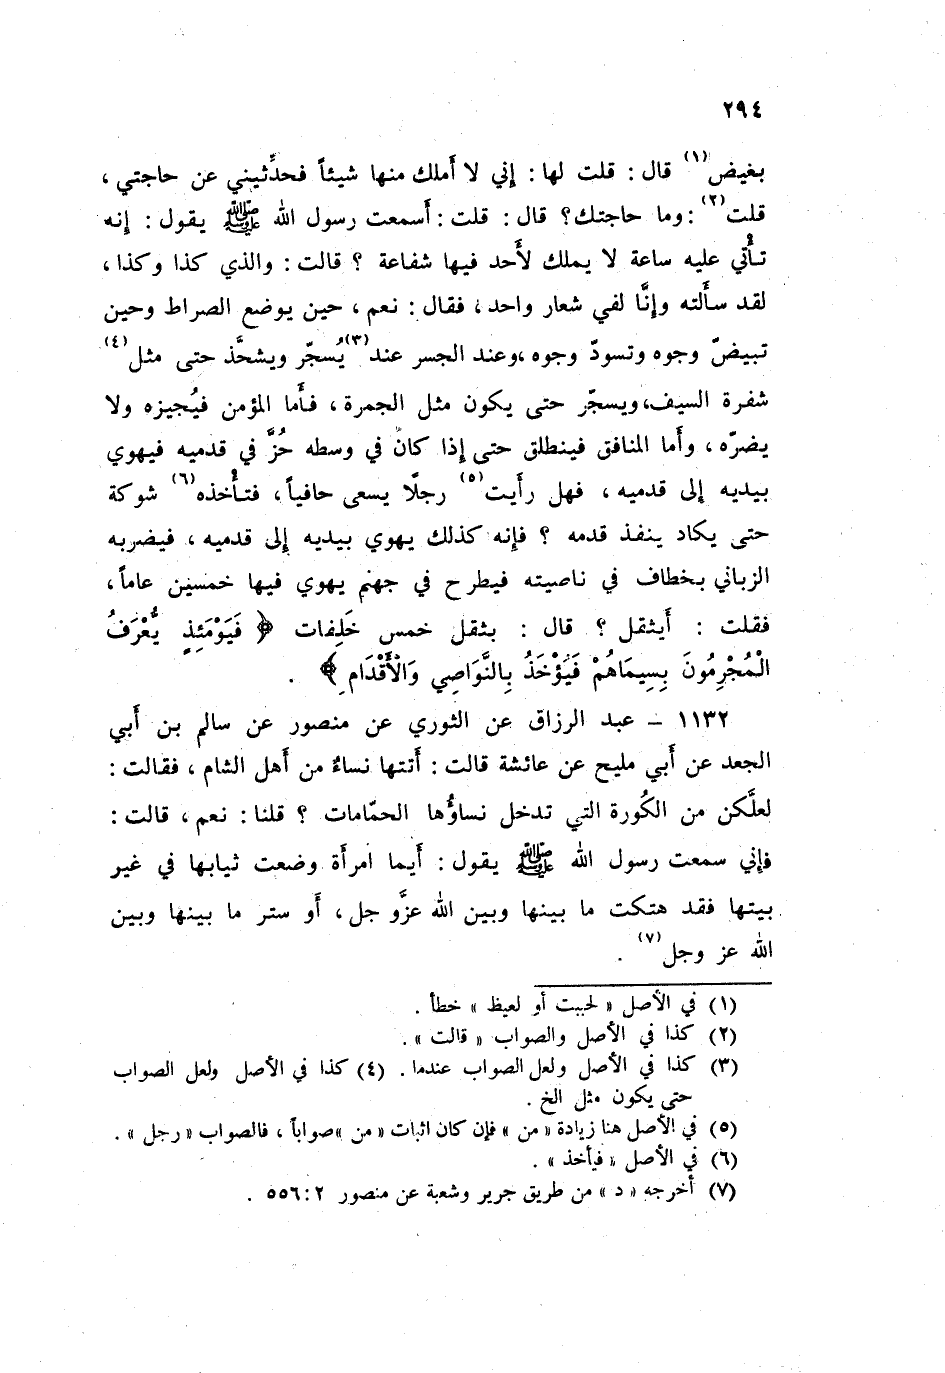 ٢٩٤
بغيض(١) قال : قلت لها : إني لا أَملك منها شيئاً فحدِّثيني عن حاجتي ،
قلت(٢) : وما حاجتك؟ قال : قلت : أَسمعت رسول الله ﷺ يقول : إنه
تأْتي عليه ساعة لا يملك لأَحد فيها شفاعة ؟ قالت : والذي كذا وكذا ،
لقد سأَلته وإنَّا لفي شعار واحد ، فقال : نعم ، حين يوضع الصراط وحين
تبيضّ وجوه وتسودّ وجوه ،وعند الجسر عند(٣) يُسجّر ويشحَّذ حتى مثل(٤)
شفرة السيف،ويسجّر حتى يكون مثل الجمرة ، فأَما المؤمن فيُجيزه ولا
يضرّه ، وأَما المنافق فينطلق حتى إذا كان في وسطه حُزَّ في قدميه فيهوي
بيديه إلى قدميه ، فهل رأَيت(٥) رجلًا يسعى حافياً ، فتأْخذه(٦) شوكة
حتى يكاد ينفذ قدمه ؟ فإنه كذلك يهوي بيديه إلى قدميه ، فيضربه
الزباني بخطاف في ناصيته فيطرح في جهنم يهوي فيها خمسين عاماً ،
فقلت : أَيثقل ؟ قال : بثقل خمس خَلِفات ﴿ فَيَوْمَئِذٍ يُّعْرَفُ
الْمُجْرِمُونَ بِسِيمَاهُمْ فَيُؤْخَذُ بِالنَّوَاصِي وَالْأَقْدَامِ ﴾ .
١١٣٢ – عبد الرزاق عن الثوري عن منصور عن سالم بن أَبي
الجعد عن أَبي مليح عن عائشة قالت : أَتتها نساءٌ من أَهل الشام ، فقالت :
لعلَّكن من الكُورة التي تدخل نساؤُها الحمّامات ؟ قلنا : نعم ، قالت :
فإني سمعت رسول الله ﷺ يقول : أَيما امرأَة وضعت ثيابها في غير
بيتها فقد هتكت ما بينها وبين الله عزَّو جل ، أَو ستر ما بينها وبين
الله عز وجل(٧) .
(١) في الأصل « لحبيت أو لعيظ » خطأ .
(٢) كذا في الأصل والصواب « قالت » .
(٣) كذا في الأصل ولعل الصواب عندما . (٤) كذا في الأصل ولعل الصواب
حتى يكون مثل الخ .
(٥) في الأصل هنا زيادة « من » فإن كان اثبات « من »صواباً ، فالصواب « رجل » .
(٦) في الأصل « فيأخذ » .
(٧) أخرجه « د » من طريق جرير وشعبة عن منصور ٢ : ٥٥٦ .